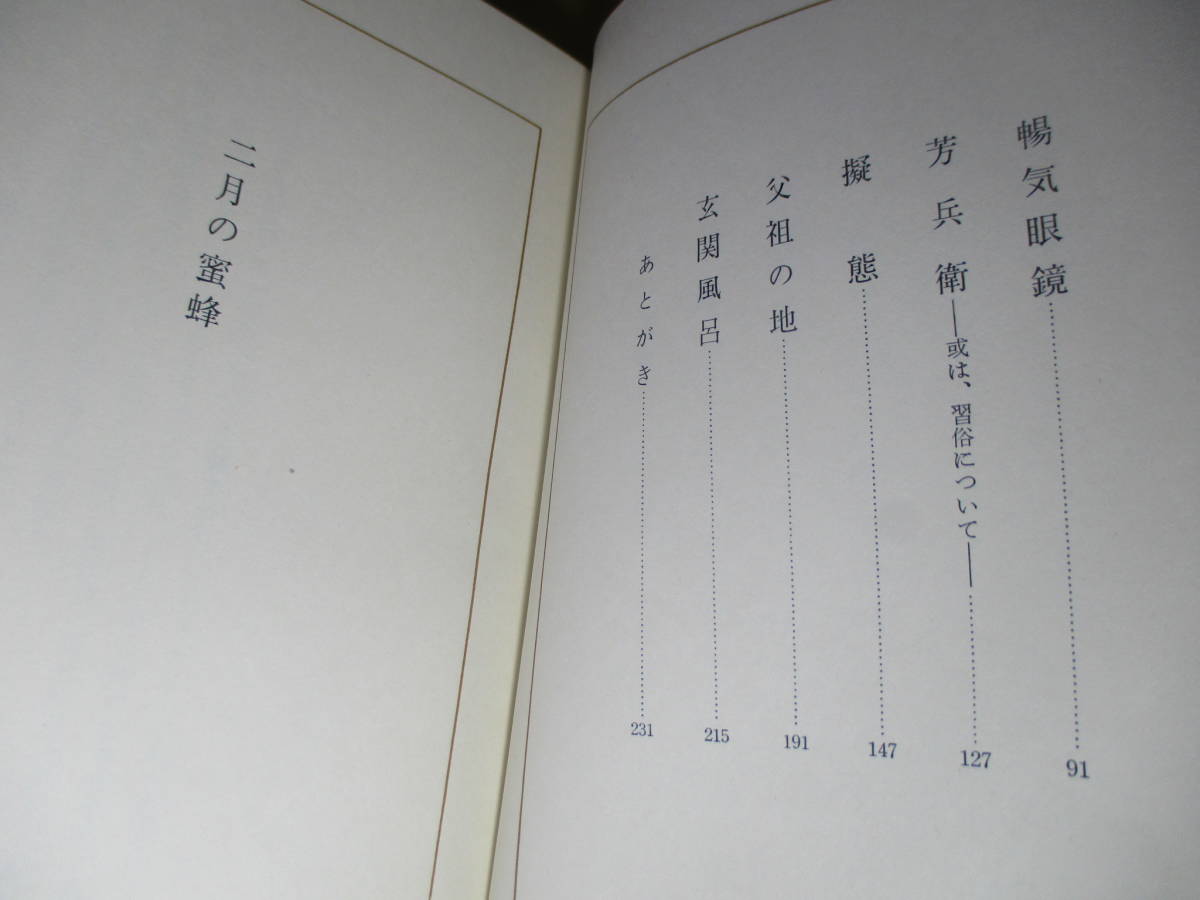 暢気眼鏡……91
芳兵衛――或は、習俗について――……127
擬態……147
父祖の地……191
玄関風呂……215
あとがき……231
二月の蜜蜂